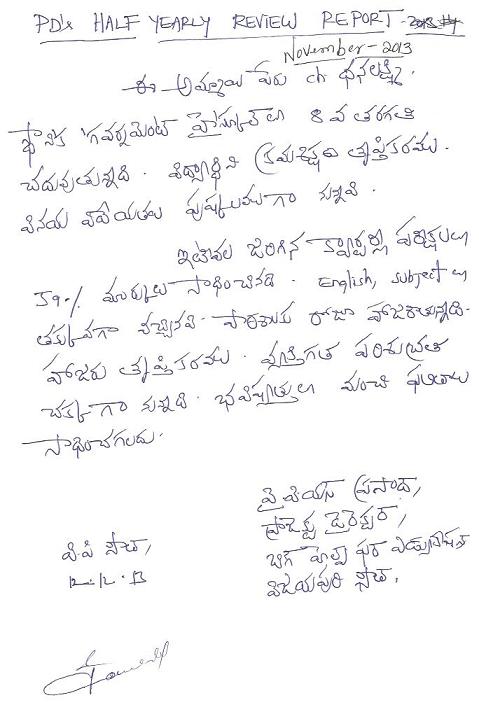 PD's HALF YEARLY REVIEW REPORT -
November - 2013
ఈ అమ్మాయి పేరు ch ధనలక్ష్మి.
స్థానిక గవర్నమెంట్ హైస్కూల్ లు 8 వ తరగతి
చదువుతున్నది. విద్యార్థిని క్రమశిక్షణ తృప్తికరము.
వినయ విధేయతలు పుష్కలముగా నున్నవి.
ఇటీవల జరిగిన క్వార్టర్లీ పరీక్షలలు
59% మార్కులు సాధించినది. English, subject లు
తక్కువగా వచ్చినవి. పాఠశాలకు రోజూ హాజరౌతున్నది.
హాజరు తృప్తికరము. వ్యక్తిగత పరిశుభ్రత
చక్కగా నున్నది. భవిష్యత్తులు మంచి ఫలితాలు
సాధించగలదు.
వై వియస ప్రసాద్,
ప్రాజెక్టు డైరెక్టర్,
బిగ్ హెల్ప్ ఫర్ ఎడ్యుకేషన్
విజయపురి సౌత్.
వి.పి సౌత్,
12.12.13